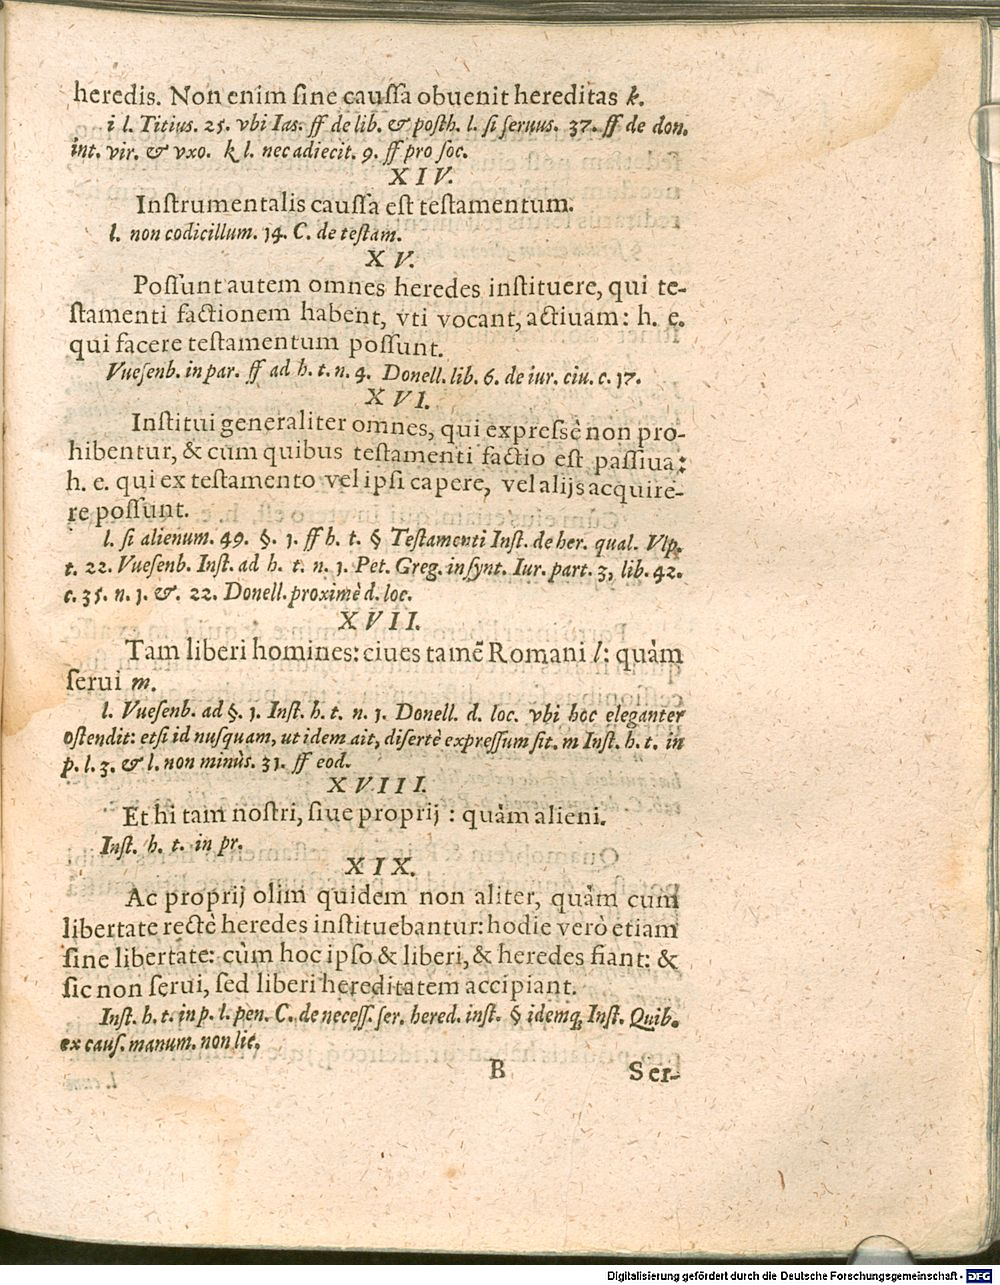 heredis. Non enim ſine cauſſa obuenit hereditas k.
i l. Titius. 25. vbi Ias. ff de lib. & poſth. l. ſi ſeruus. 37. ff de don.
int. vir. & vxo. k l. nec adiecit. 9. ff pro ſoc.
XIV.
Inſtrumentalis cauſſa eſt teſtamentum.
l. non codicillum. 14. C. de teſtam.
XV.
Poſſunt autem omnes heredes inſtituere, qui te-
ſtamenti factionem habent, vti vocant, actiuam: h. e.
qui facere teſtamentum poſſunt.
Vueſenb. in par. ff ad h. t. n. 4. Donell. lib. 6. de iur. ciu. c. 17.
XVI.
Inſtitui generaliter omnes, qui expreſsè non pro-
hibentur, & cum quibus teſtamenti factio eſt paſſiua:
h. e. qui ex teſtamento vel ipſi capere, vel alijs acquire-
re poſſunt.
l. ſi alienum. 49. §. 1. ff h. t. § Teſtamenti Inſt. de her. qual. Vlp.
t. 22. Vueſenb. Inſt. ad h. t. n. 1. Pet. Greg. in ſynt. Iur. part. 3, lib. 42.
c. 35. n. 1. &. 22. Donell. proximè d. loc.
XVII.
Tam liberi homines: ciues tamē Romani l: quàm
ſerui m.
l. Vueſenb. ad §. 1. Inſt. h. t. n. 1. Donell. d. loc. vbi hoc eleganter
oſtendit: etſi id nuſquam, ut idem ait, diſertè expreſſum ſit. m Inſt. h. t. in
p. l. 3. & l. non minùs. 31. ff eod.
XVIII.
Et hi tam noſtri, ſiue proprij : quàm alieni.
Inſt. h. t. in pr.
XIX.
Ac proprij olim quidem non aliter, quàm cum
libertate rectè heredes inſtituebantur: hodie verò etiam
ſine libertate: cùm hoc ipſo & liberi, & heredes fiant: &
ſic non ſerui, ſed liberi hereditatem accipiant.
Inſt. h. t. in p. l. pen. C. de neceſſ. ſer. hered. inſt. § idemq́, Inſt. Quib.
ex cauſ. manum. non lic.
B Ser-
Digitalisierung gefördert durch die Deutsche Forschungsgemeinschaft - DFG